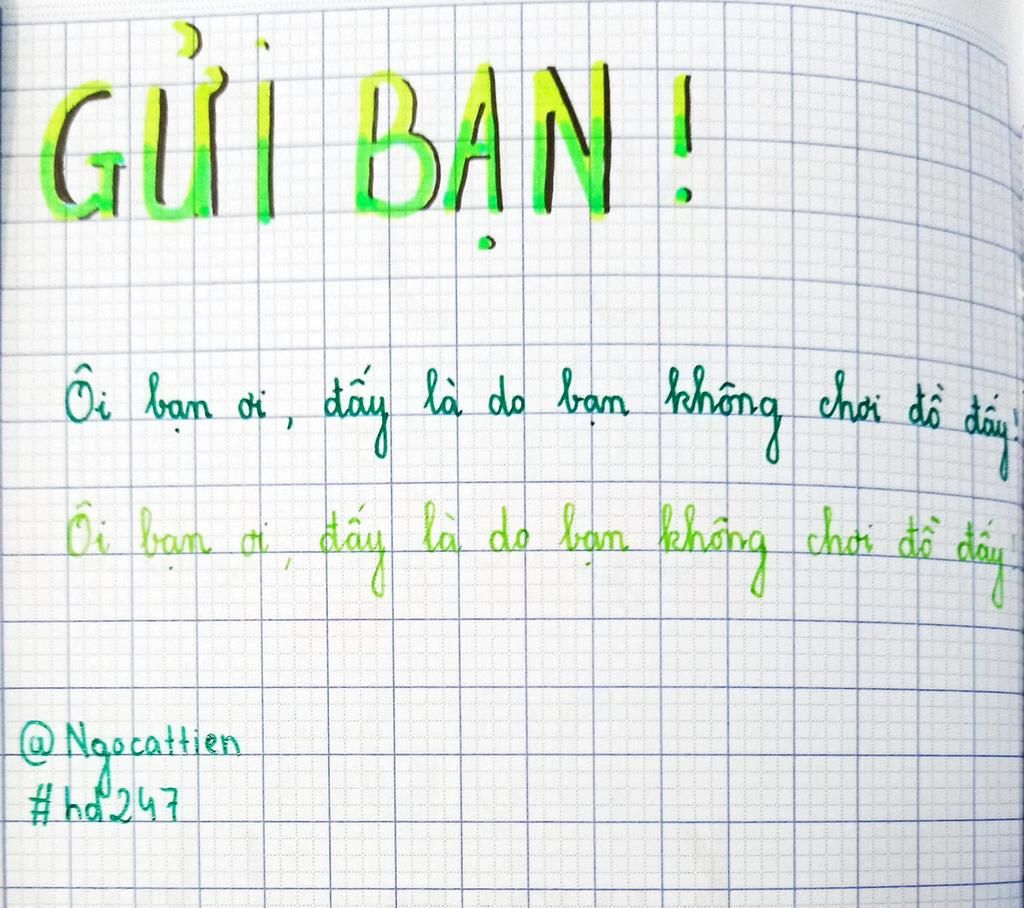 GỬI BẠN !
Ôi bạn ơi, đấy là do bạn không chơi đồ đấy!
Ôi bạn ơi, đấy là do bạn không chơi đồ đấy!
@Ngocattien
#hd247